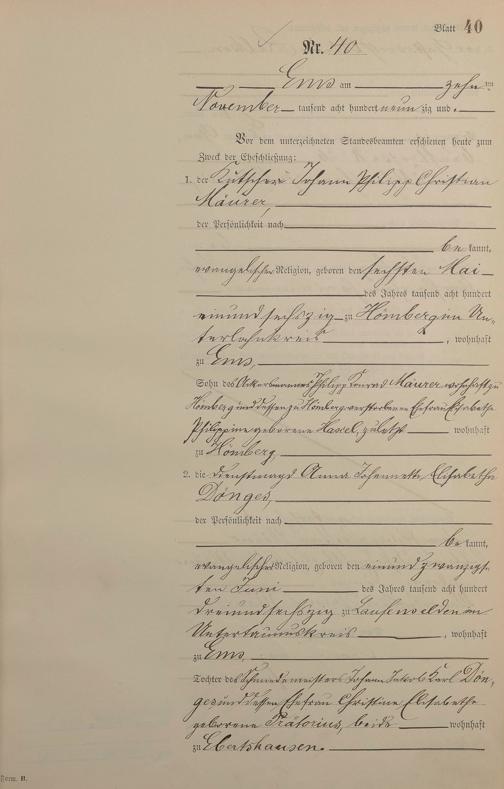 Blatt 40
Nr. 40
Ems am zehnten
November tausend acht hundert neunzig und
Vor dem unterzeichneten Standesbeamten erschienen heute zum
Zweck der Eheschließung:
1. der Kutscher Johann Philipp Christian
Mäurer,
der Persönlichkeit nach
be kannt,
evangelischer Religion, geboren den sechsten Mai
des Jahres tausend acht hundert
einundsechszig zu Hömberg im Un-
terlahnkreis, wohnhaft
zu Ems,
Sohn des Ackersmannes Philipp Konrad Mäurer wohnhaft zu
Hömberg und dessen zu Hömberg verstorbenen Ehefrau Elisabethe
Philippine geborene Hasel, zuletzt wohnhaft
zu Hömberg
2. die Dienstmagd Anna Johannette Elisabethe
Dönges,
der Persönlichkeit nach
be kannt,
evangelischer Religion, geboren den einundzwanzigs-
ten Juni des Jahres tausend acht hundert
dreiundsechszig zu Laufenselden im
Untertaunuskreis, wohnhaft
zu Ems,
Tochter des Schmiedemeisters Johann Jakob Karl Dön-
ges und dessen Ehefrau Christine Elisabethe
geborene Prätorius, beide wohnhaft
zu Ebertshausen.
Form. B.